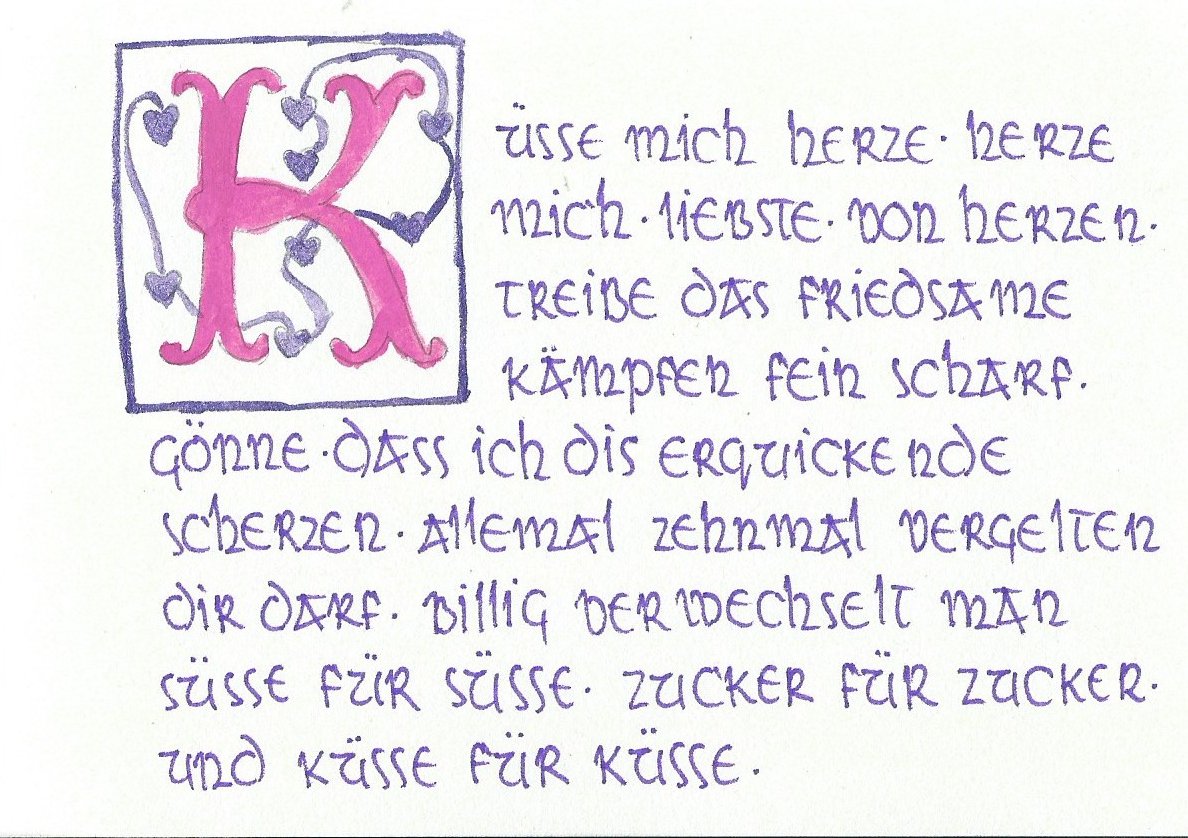 Küsse mich herze. herze
mich. liebste. von herzen.
treibe das friedsame
kämpfen fein scharf.
gönne. dass ich dis erquickende
scherzen. allemal zehnmal vergelten
dir darf. billig verwechselt man
süsse für süsse. zucker für zucker.
und küsse für küsse.